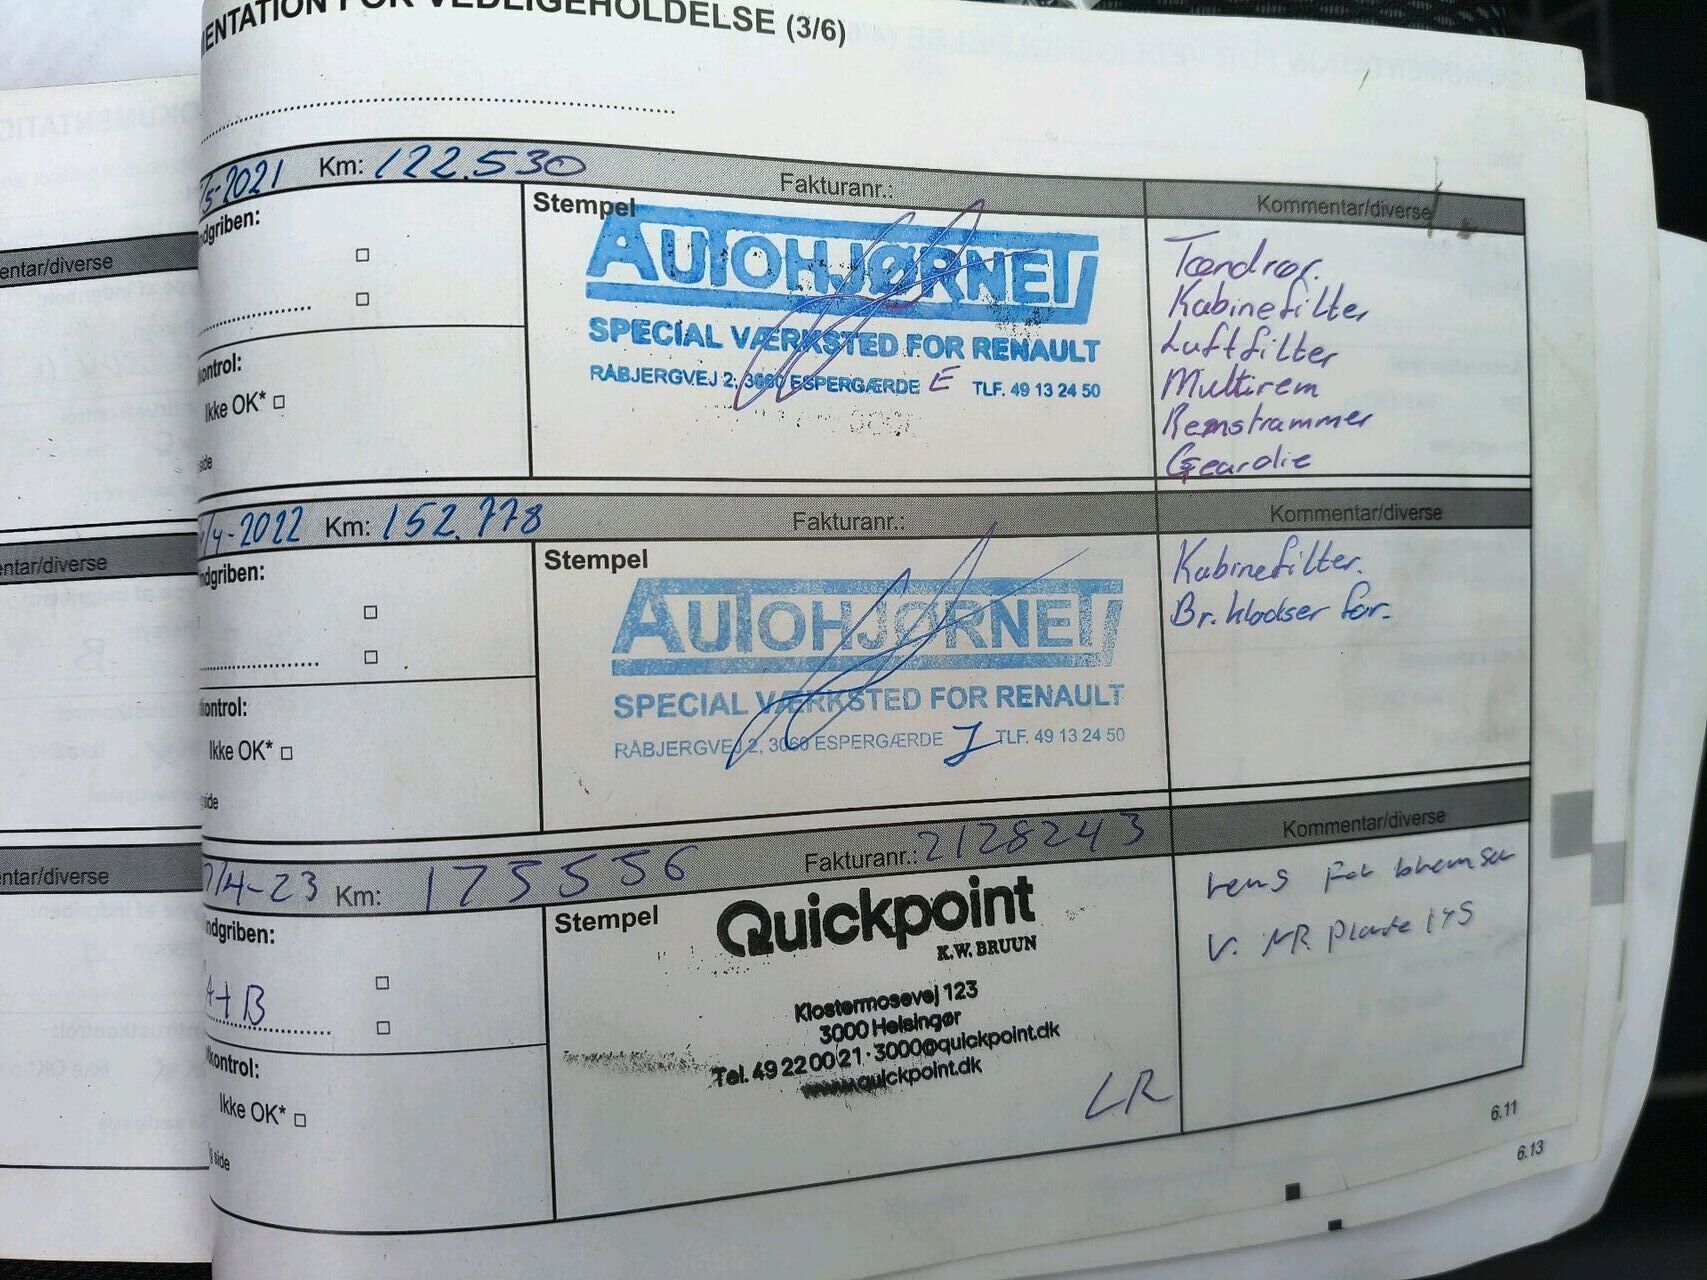 MENTATION FOR VEDLIGEHOLDELSE (3/6)
/5-2021 Km: 122.530 Fakturanr.: Kommentar/diverse
ndgriben:
Stempel
AUTOHJØRNET
SPECIAL VÆRKSTED FOR RENAULT
RÅBJERGVEJ 2, 3060 ESPERGÆRDE E TLF. 49 13 24 50
Tændrør.
Kabinefilter
Luftfilter
Multirem
Remstrammer
Gearolie
kontrol:
Ikke OK*
side
/4-2022 Km: 152.778 Fakturanr.: Kommentar/diverse
ndgriben:
Stempel
AUTOHJØRNET
SPECIAL VÆRKSTED FOR RENAULT
RÅBJERGVEJ 2, 3060 ESPERGÆRDE TLF. 49 13 24 50
Kabinefilter.
Br. klodser for.
kontrol:
Ikke OK*
side
7/4-23 Km: 175556 Fakturanr.: 2128243 Kommentar/diverse
ndgriben:
A+B
Stempel
Quickpoint
K.W. BRUUN
Klostermosevej 123
3000 Helsingør
Tel. 49 22 00 21 · 3000@quickpoint.dk
www.quickpoint.dk
LR
rens For bremser
V. NR. Plade
kontrol:
Ikke OK*
side
6.11
6.13
entar/diverse
entar/diverse
entar/diverse